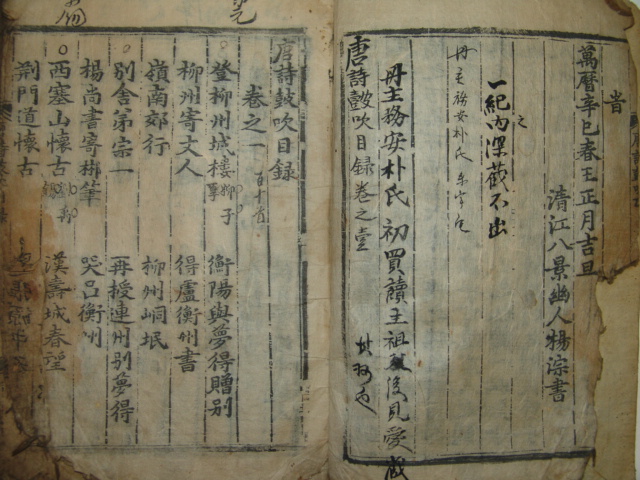 萬曆辛巳春王正月吉旦
清江八景幽人楊淙書
一紀內深藏不出
冊主務安朴氏
冊主務安朴氏初買讀主祖
後見愛
唐詩鼓吹目錄卷之壹
唐詩鼓吹目錄
卷之一 百十首
登柳州城樓 柳子厚 衡陽與夢得贈別
柳州寄丈人 得盧衡州書
嶺南郊行 柳州峒氓
別舍弟宗一 再授連州別夢得
楊尚書寄郴筆 哭呂衡州
西塞山懷古 漢壽城春望
荆門道懷古